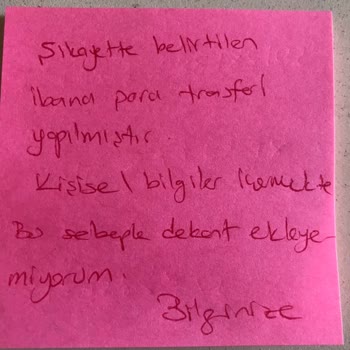 Şikayette belirtilen
ibana para trasferi
yapılmıştır.
Kişisel bilgiler içermekte
Bu sebeple dekont ekleye-
miyorum.
Bilginize